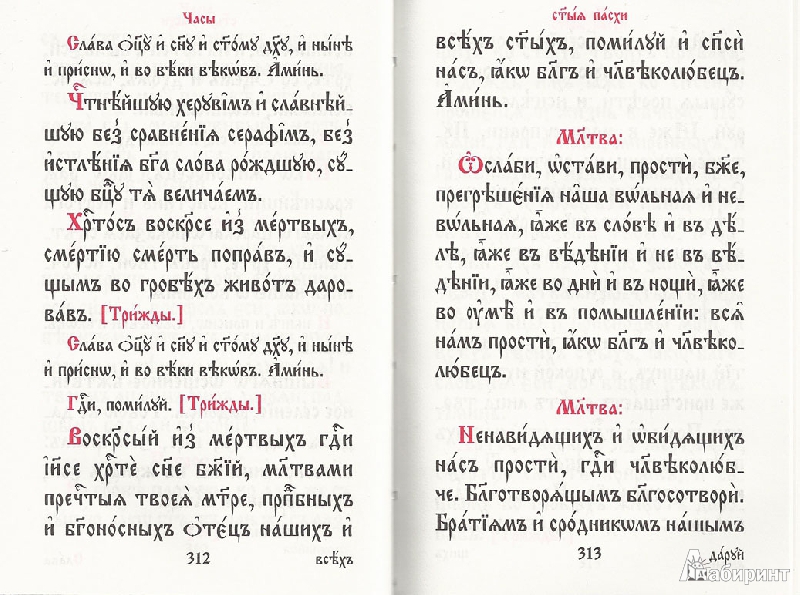 Часы̀
Сла́ва ѻ҆ц҃ꙋ̀ и҆ сн҃ꙋ и҆ ст҃о́мꙋ дх҃ꙋ, и҆ ны́нѣ
и҆ при́снѡ, и҆ во вѣ́ки вѣкѡ́въ. А҆ми́нь.
Чⷭ҇тнѣ́йшꙋю херꙋві̑мъ и҆ сла́внѣй-
шꙋю без̾ сравне́нїѧ серафі̑мъ, без̾
и҆стлѣ́нїѧ бг҃а сло́ва ро́ждшꙋю, сꙋ́-
щꙋю бцⷣꙋ тѧ̀ велича́емъ.
Хрⷭ҇то́съ воскр҃се и҆з̾ ме́ртвыхъ,
сме́ртїю сме́рть попра́въ, и҆ сꙋ́-
щымъ во гробѣ́хъ живо́тъ даро-
ва́въ. [Три́жды.]
Сла́ва ѻ҆ц҃ꙋ̀ и҆ сн҃ꙋ и҆ ст҃о́мꙋ дх҃ꙋ, и҆ ны́нѣ
и҆ при́снѡ, и҆ во вѣ́ки вѣкѡ́въ. А҆ми́нь.
Гдⷭ҇и, поми́лꙋй. [Три́жды.]
Воскр҃сы́й и҆з̾ ме́ртвыхъ гдⷭ҇и
і҆и҃се хрⷭ҇тѐ сн҃е бж҃їй, мл҃твами
пречⷭ҇тыѧ твоеѧ̀ мт҃ре, прпⷣбныхъ
и҆ бг҃оно́сныхъ ѻ҆тє́цъ на́шихъ и҆
312
всѣ́хъ
ст҃ы́ѧ па́схи
всѣ́хъ ст҃ы́хъ, поми́лꙋй и҆ сп҃сѝ
на́съ, ꙗ҆́кѡ бл҃гъ и҆ чл҃вѣколю́бецъ.
А҆ми́нь.
Мл҃тва:
Ѡ҆сла́би, ѡ҆ста́ви, простѝ, бж҃е,
прегрѣшє́нїѧ на̑ша вѡ́льнаѧ и҆ не-
вѡ́льнаѧ, ꙗ҆̀же въ сло́вѣ и҆ въ дѣ́-
лѣ, ꙗ҆̀же въ вѣ́дѣнїи и҆ не въ вѣ́-
дѣнїи, ꙗ҆̀же во днѝ и҆ въ нощѝ, ꙗ҆̀же
во ᲂу҆мѣ̀ и҆ въ помышле́нїи: всѧ̑
на́мъ простѝ, ꙗ҆́кѡ бл҃гъ и҆ чл҃вѣко-
лю́бецъ.
Мл҃тва:
Ненави́дѧщихъ и҆ ѡ҆би́дѧщихъ
на́съ простѝ, гдⷭ҇и чл҃вѣколю́б-
че. Бл҃готворѧ́щымъ благосотворѝ.
Бра́тїѧмъ и҆ срⷪ҇дникѡмъ на́шымъ
313
да́рꙋй
Лабиринт